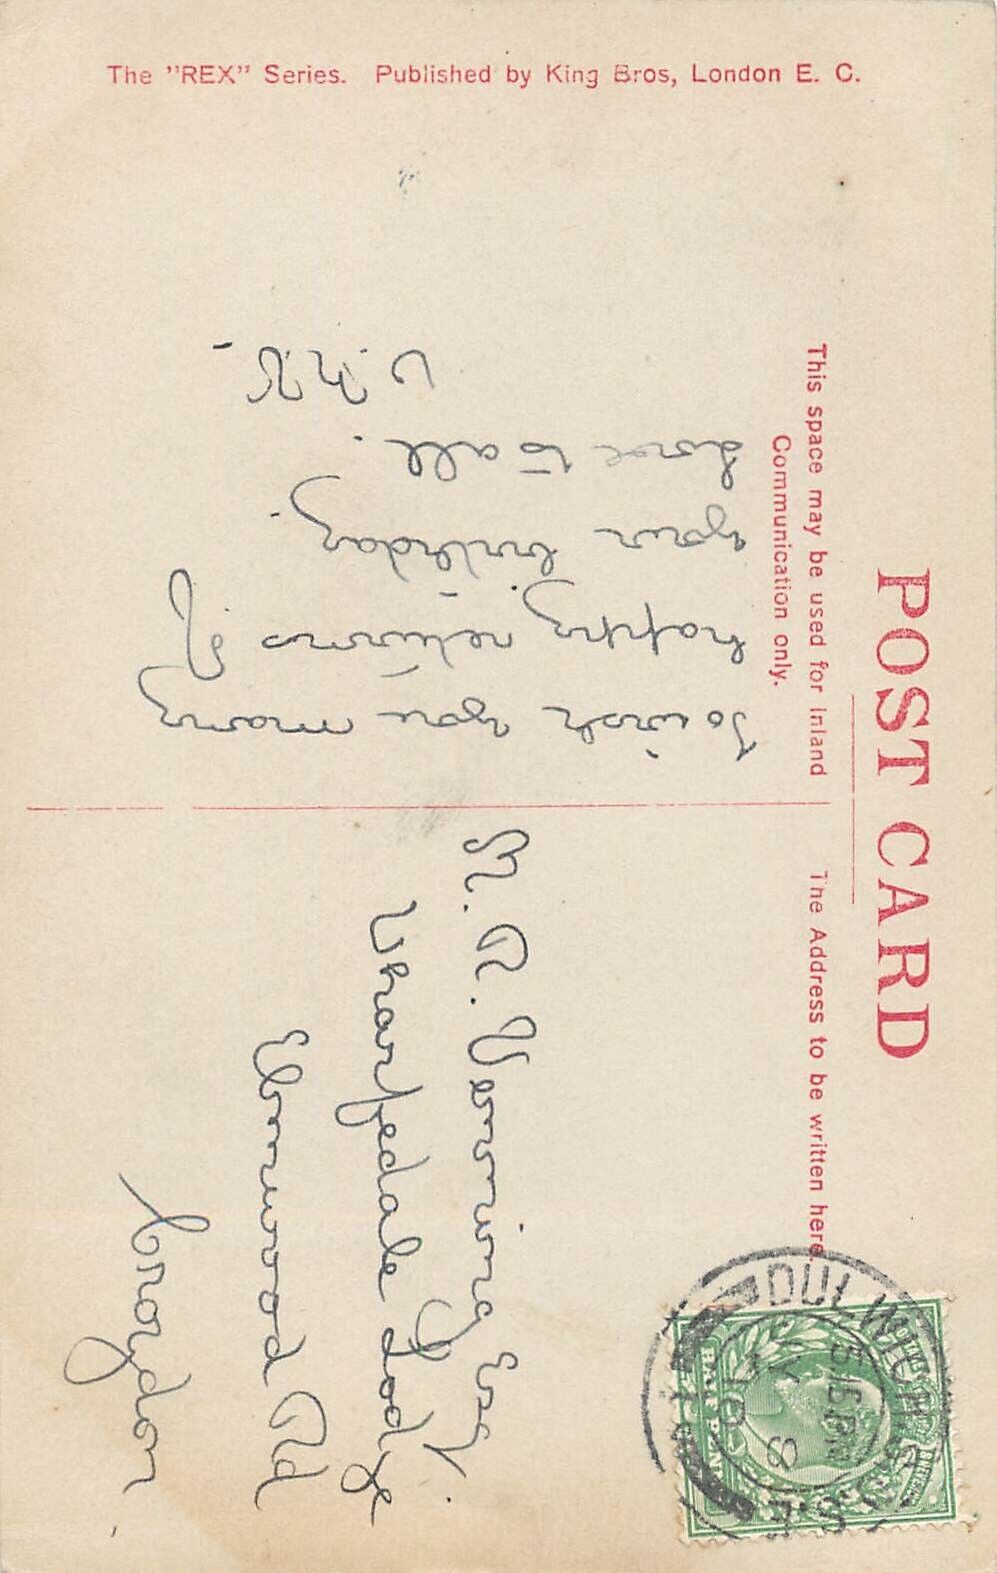 The "REX" Series. Published by King Bros, London E. C.
POST CARD
This space may be used for Inland
Communication only.
The Address to be written here.
To wish you many
happy returns of
your birthday.
Love to all.
M. R. Verning Esq.
Wharfedale Lodge
Elmwood Rd
Croydon
DULWICH
5.15 PM
8
10
S.E.
HALFPENNY